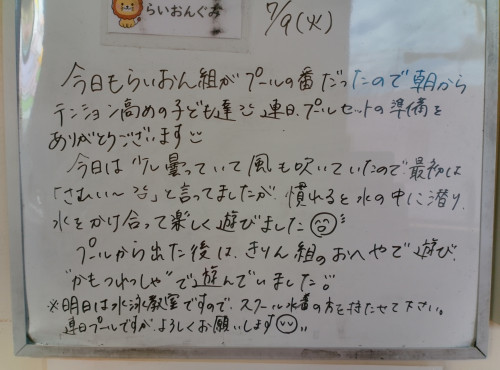 らいおんぐみ
7/9(火)
今日もらいおん組がプールの番だったので朝から
テンション高めの子ども達 連日、プールセットの準備を
ありがとうございます
今日は少し曇っていて風も吹いていたので最初は
「さむい〜」と言ってましたが、慣れると水の中に潜り、
水をかけ合って楽しく遊びました
プールから出た後は、きりん組のおへやで遊び、
"かもつれっしゃ"で遊んでいました!!
※明日は水泳教室ですので、スクール水着の方を持たせて下さい。
連日プールですが、よろしくお願いします